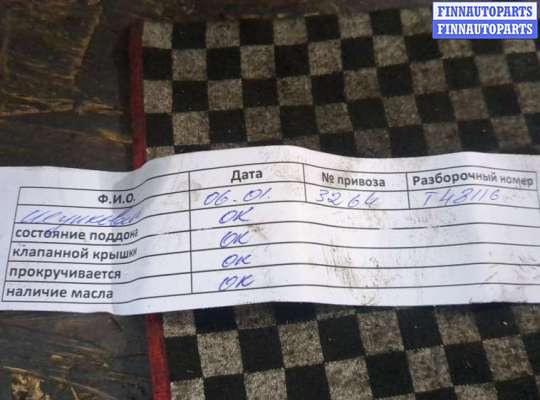 FINNAUTOPARTS
FINNAUTOPARTS
Ф.И.О. Дата № привоза Разборочный номер
06.01. 3264 Т48116
состояние поддона ОК
клапанной крышки ОК
прокручивается ОК
наличие масла ОК